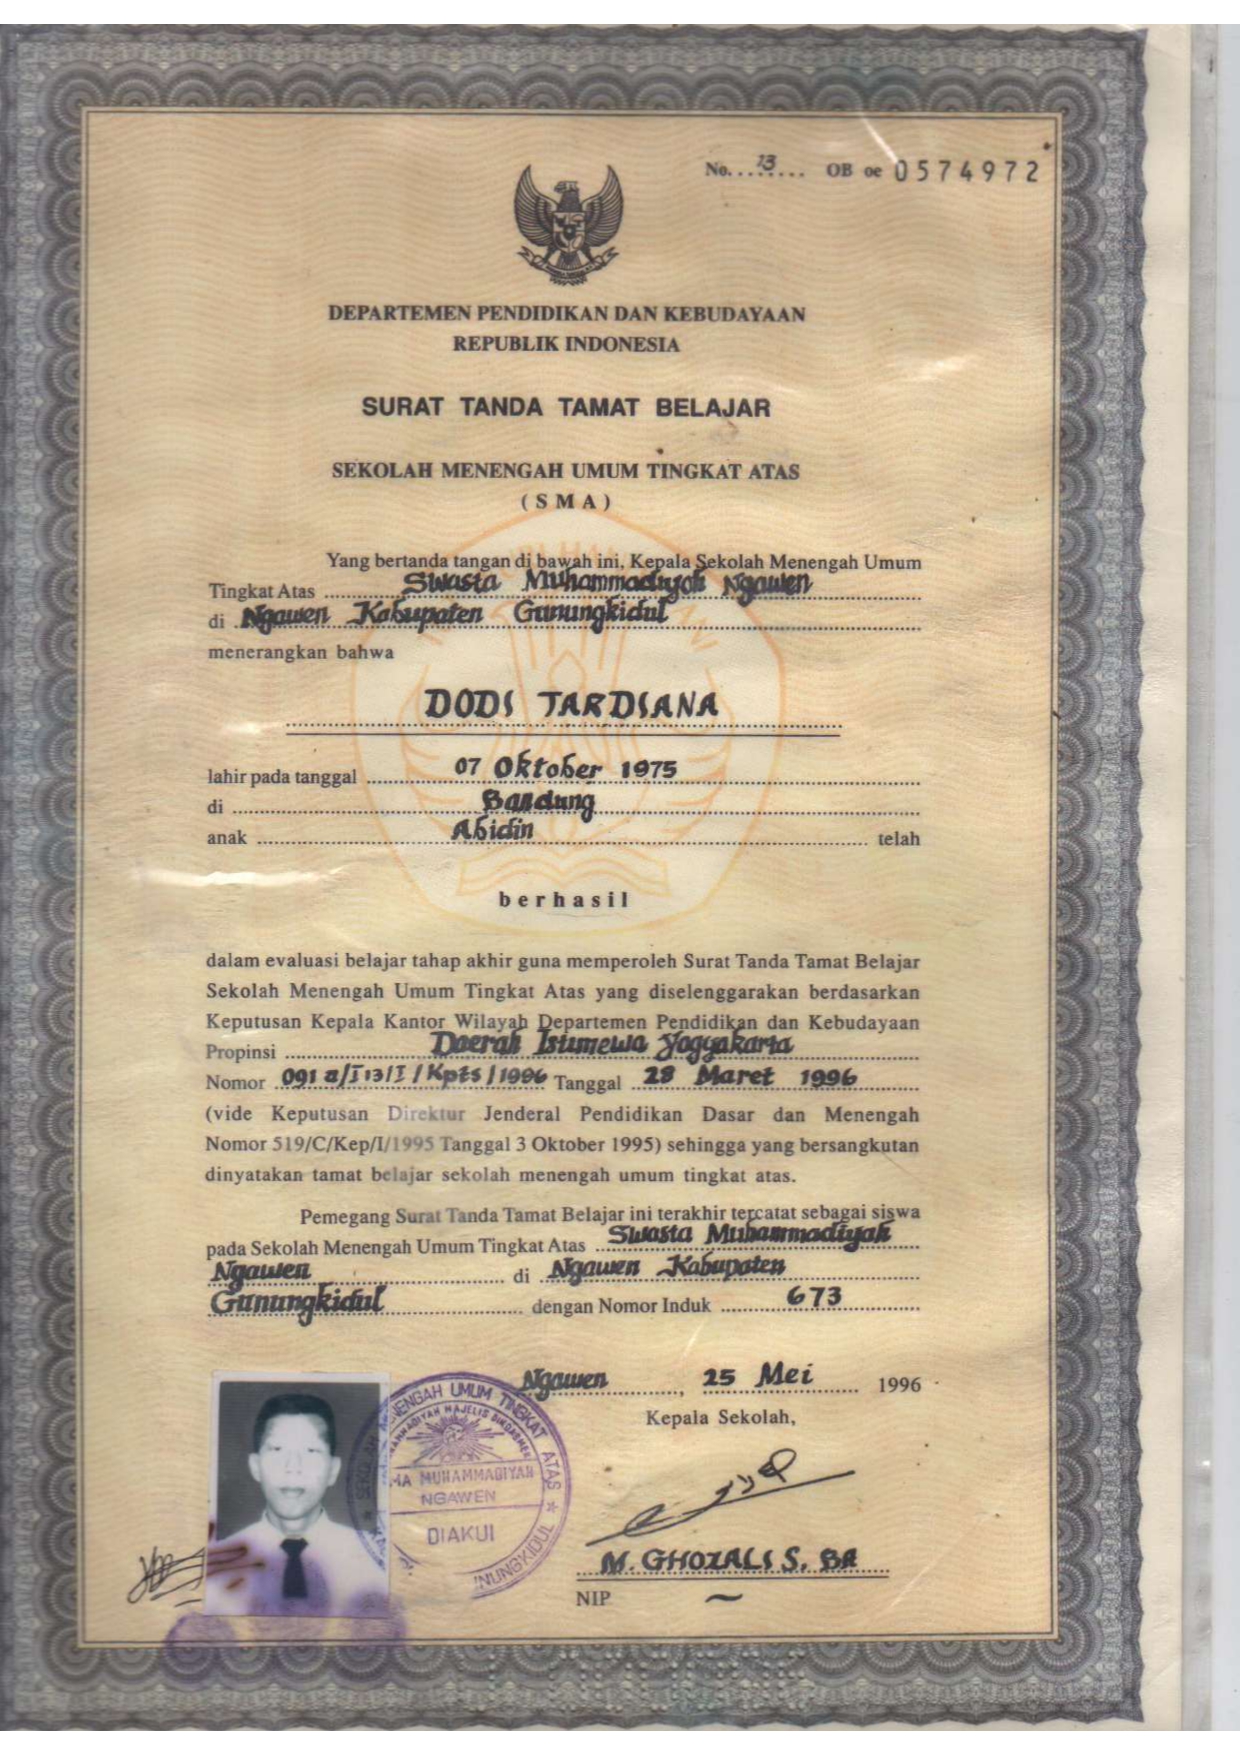 No. 13 OB oe 0574972
DEPARTEMEN PENDIDIKAN DAN KEBUDAYAAN
REPUBLIK INDONESIA
SURAT TANDA TAMAT BELAJAR
SEKOLAH MENENGAH UMUM TINGKAT ATAS
( S M A )
Yang bertanda tangan di bawah ini, Kepala Sekolah Menengah Umum
Tingkat Atas Swasta Muhammadiyah Ngawen
di Ngawen Kabupaten Gunungkidul
menerangkan bahwa
DODI TARDIANA
lahir pada tanggal 07 Oktober 1975
di Bandung
anak Abidin telah
berhasil
dalam evaluasi belajar tahap akhir guna memperoleh Surat Tanda Tamat Belajar
Sekolah Menengah Umum Tingkat Atas yang diselenggarakan berdasarkan
Keputusan Kepala Kantor Wilayah Departemen Pendidikan dan Kebudayaan
Propinsi Daerah Istimewa Yogyakarta
Nomor 091 a/I13/I/Kpts/1996 Tanggal 28 Maret 1996
(vide Keputusan Direktur Jenderal Pendidikan Dasar dan Menengah
Nomor 519/C/Kep/I/1995 Tanggal 3 Oktober 1995) sehingga yang bersangkutan
dinyatakan tamat belajar sekolah menengah umum tingkat atas.
Pemegang Surat Tanda Tamat Belajar ini terakhir tercatat sebagai siswa
pada Sekolah Menengah Umum Tingkat Atas Swasta Muhammadiyah
Ngawen di Ngawen Kabupaten
Gunungkidul dengan Nomor Induk 673
Ngawen, 25 Mei 1996
Kepala Sekolah,
MENGAH UMUM TINGKAT ATAS
MAJELIS DIKDASMEN
MUHAMMADIYAH
NGAWEN
DIAKUI
NUNGKIDUL
M. GHOZALI S. BA
NIP ~